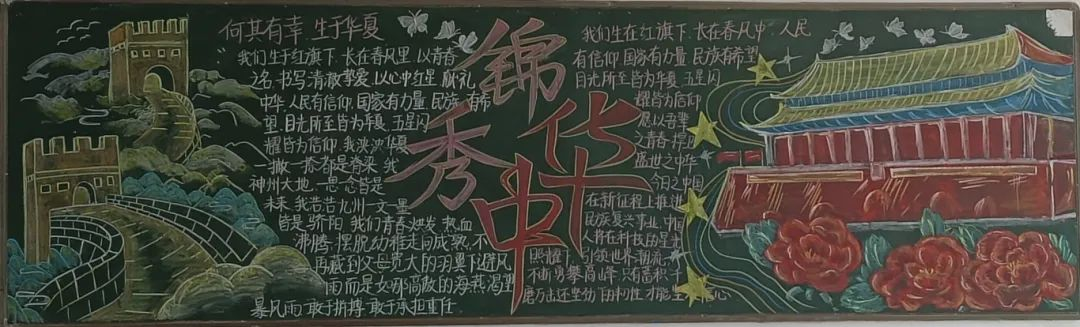 何其有幸 生于华夏
我们生于红旗下 长在春风里 以青春
之名 书写清澈挚爱 以心中红星 献礼
中华 人民有信仰 国家有力量 民族有希
望 目光所至皆为华夏 五星闪
耀皆为信仰 我泱泱华夏
一撇一捺都是脊梁 我
神州大地 一思一念皆是
未来 我茫茫九州 一文一墨
皆是骄阳 我们青春焕发 热血
沸腾 摆脱幼稚走向成熟 不
再藏到父母宽大的羽翼下避风
雨而是如那高傲的海 我渴望
暴风雨 敢于拼搏 敢于承担重任
锦
秀
中
华
我们生在红旗下 长在春风中 人民
有信仰 国家有力量 民族有希望
目光所至皆为华夏 五星闪
耀皆为信仰
愿以吾辈
之青春 捍卫
盛世之中华
今日之中国
在新征程上推进
民族复兴事业 中国
人将在科技的星光
照耀下 引领世界潮流
不断勇攀高峰 只有蓄积千
磨万击还坚劲 的韧性 才能 心